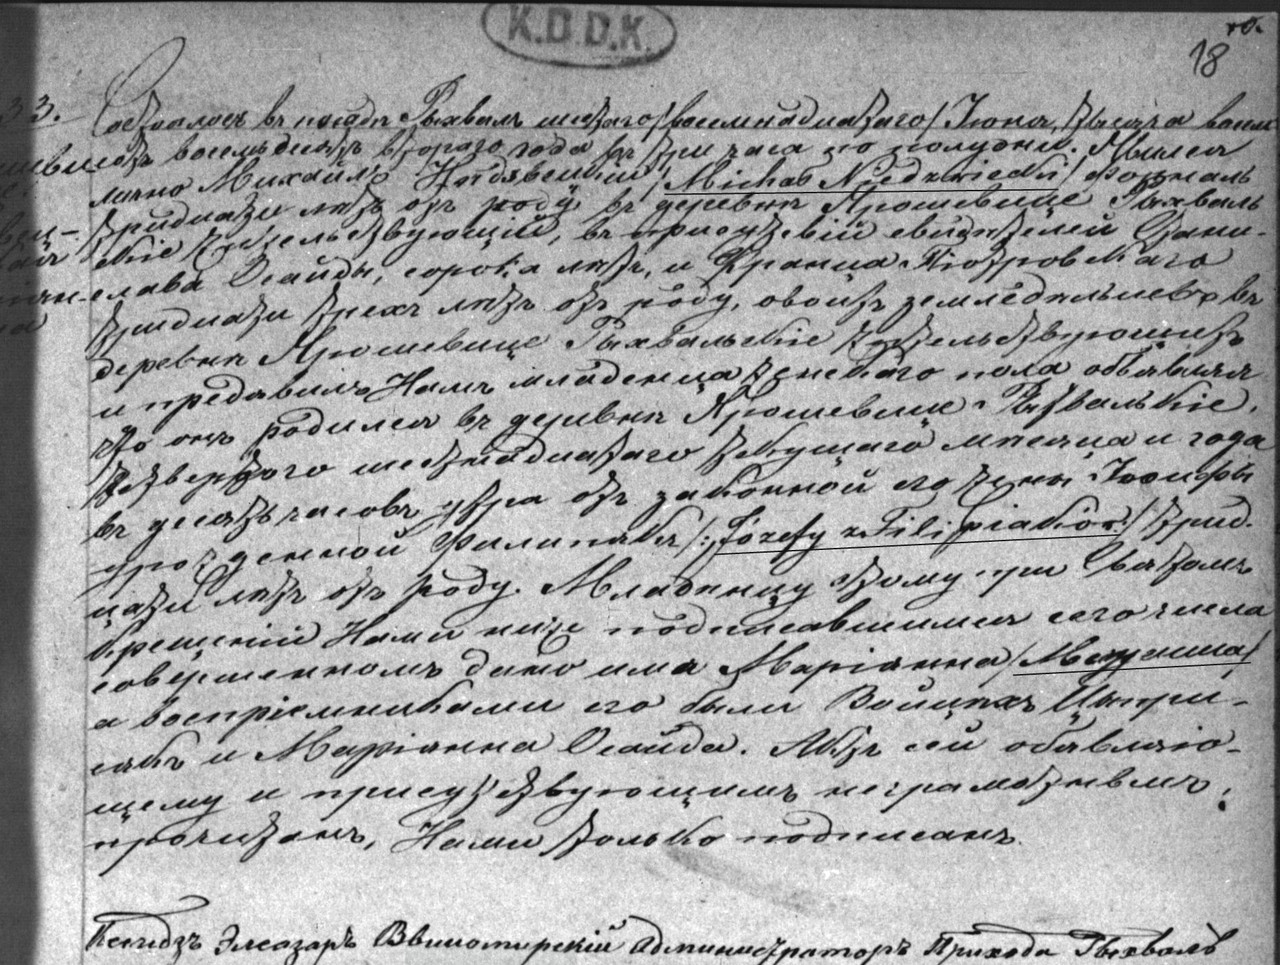 К.D.D.K.
18
33.
Состоялось в посаде Рыхвалъ шестаго /восемнадцатаго/ Іюня, тысяча восемь
сотъ восемьдесятъ втораго года въ три часа по полудни. Явился
лично Михаилъ /Michał Niedzwiecki/ форналь
тридцати лѣтъ отъ роду въ деревнѣ Ярошевице Рыхваль
скіе жительствующій, въ присутствіи свидѣтелей Стани-
слава Осайды, сорока лѣтъ, и Франца Піотровскаго
тридцати трехъ лѣтъ отъ роду, обоихъ земледѣльцевъ въ
деревнѣ Ярошевице Рыхвальскіе жительствующихъ
и предъявилъ Намъ младенца женскаго пола объявляя
что онъ родился въ деревнѣ Ярошевице Рыхвальскіе,
четвертого /шестнадцатаго текущаго мѣсяца и года
въ десять часовъ утра отъ законной его жены Іозефы
урожденной Филипякъ /:Józefy z Filipiaków:/ трид-
цати лѣтъ отъ роду. Младенцу этому при Святомъ
Крещеніи Нами ниже подписавшимся сего числа
совершенномъ дано имя Маріянна /Maryanna/
а воспріемниками его были Войцѣхъ Ципри-
сякъ и Маріянна Осайда. Актъ сей объявляю-
щему и присутствующимъ неграмотнымъ
прочитанъ, Нами только подписанъ.
Ксендзъ Элеазаръ Администраторъ Прихода Рыхвалъ